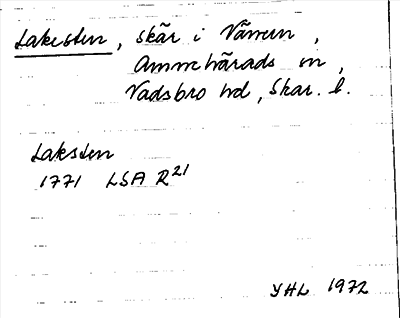 Lakesten, skär i Vänern,
Amnehärads sn,
Vadsbo hd, Skar. l.
Laksten
1771 LSA R21
YHL 1972